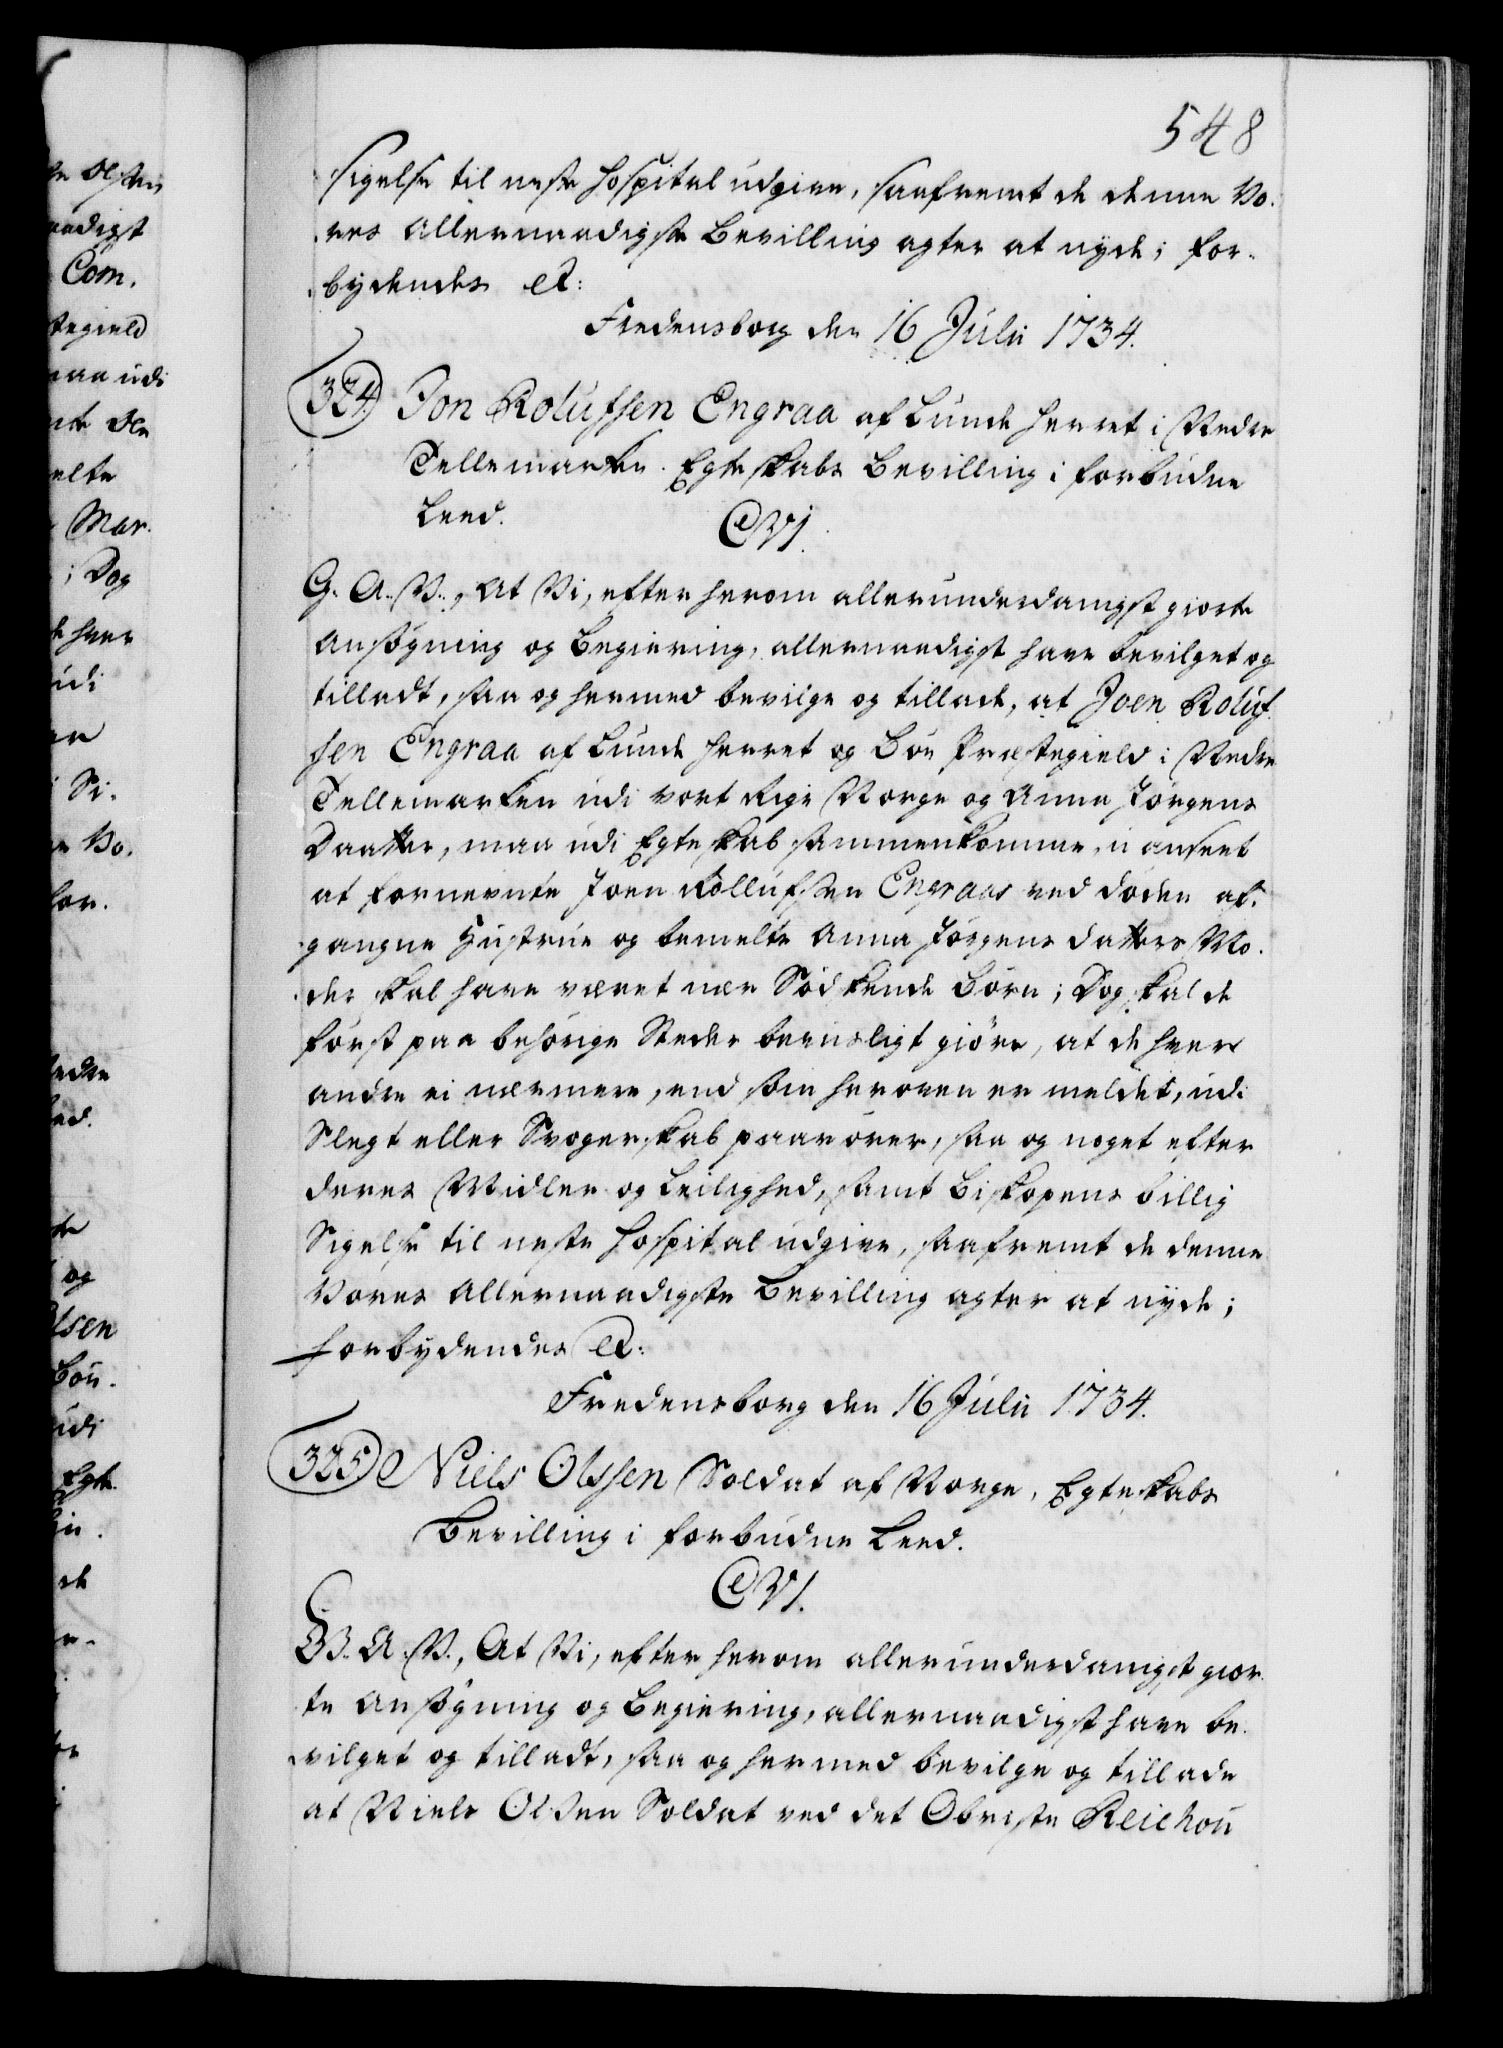 548
sigelse til neste Hospital udgive, saafremt de denne Vo-
res Allernaadigste Bevilling agter at nyde; for-
bydendes etc:
Fredensborg den 16 Julii 1734.
324. Jon Rolufsen Engraa af Lunde Herret i Nedre
Tellemarken Egteskabs Bevilling i forbudne
Leed.
CVI.
G. A. V., At Vi, efter herom allerunderdanigst giorte
Ansögning og Begiering, allernaadigst have bevilget og
tilladt, saa og hermed bevilge og tillade, at Joen Roluf-
sen Engraa af Lunde Herret og Böe Præstegield i Nedre
Tellemarken udi vort Rige Norge og Anne Jörgens
Daatter, maa udi Egteskab sammenkomme, u anseet
at fornevnte Joen Rollufsen Engraas ved döden af-
gangne Hustrue og bemelte Anna Jörgens datters Mo-
der skal have været nær Södskende Börn; Dog skal de
först paa behörige Steder beviisligt giöre, at de hver
andre ei nærmere, end som heroven er meldet, udi
Slegt eller Svogerskab paarörer, saa og noget efter
deres Midler og Leilighed, samt Biskopens billig
Sigelse til neste Hospital udgive, saafremt de denne
Vores Allernaadigste Bevilling agter at nyde;
forbydendes etc:
Fredensborg den 16 Julii 1734.
325. Niels Olssen Soldat af Norge, Egteskabs
Bevilling i forbudne Leed.
CVI.
G. A. V., At Vi, efter herom allerunderdanigst gior-
te Ansögning og Begiering, allernaadigst have be-
vilget og tilladt, saa og hermed bevilge og tillade
at Niels Olssen Soldat ved det Obriste Reichou